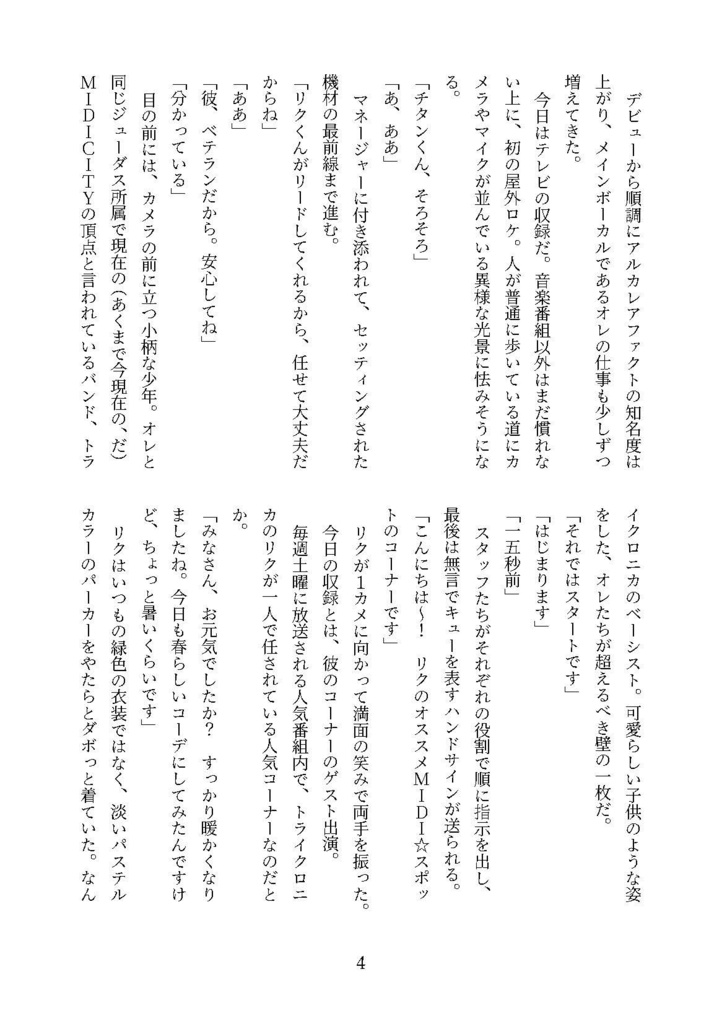 デビューから順調にアルカレアファクトの知名度は
上がり、メインボーカルであるオレの仕事も少しずつ
増えてきた。
　今日はテレビの収録だ。音楽番組以外はまだ慣れな
い上に、初の屋外ロケ。人が普通に歩いている道にカ
メラやマイクが並んでいる異様な光景に怯みそうにな
る。
「チタンくん、そろそろ」
「あ、ああ」
　マネージャーに付き添われて、セッティングされた
機材の最前線まで進む。
「リクくんがリードしてくれるから、任せて大丈夫だ
からね」
「ああ」
「彼、ベテランだから。安心してね」
「分かっている」
　目の前には、カメラの前に立つ小柄な少年。オレと
同じジューダス所属で現在の（あくまで今現在の、だ）
ＭＩＤＩＣＩＴＹの頂点と言われているバンド、トラ
イクロニカのベーシスト。可愛らしい子供のような姿
をした、オレたちが超えるべき壁の一枚だ。
「それではスタートです」
「はじまります」
「一五秒前」
　スタッフたちがそれぞれの役割で順に指示を出し、
最後は無言でキューを表すハンドサインが送られる。
「こんにちは～！　リクのオススメＭＩＤＩ☆スポッ
トのコーナーです」
　リクが１カメに向かって満面の笑みで両手を振った。
　今日の収録とは、彼のコーナーのゲスト出演。
　毎週土曜に放送される人気番組内で、トライクロニ
カのリクが一人で任されている人気コーナーなのだと
か。
「みなさん、お元気でしたか？　すっかり暖かくなり
ましたね。今日も春らしいコーデにしてみたんですけ
ど、ちょっと暑いくらいです」
　リクはいつもの緑色の衣装ではなく、淡いパステル
カラーのパーカーをやたらとダボっと着ていた。なん
4